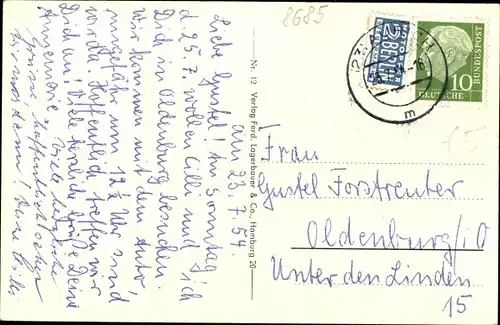 8685
am 23.7.54.
Liebe Gustel! Am Sonntag
d. 25.7. wollen Cilli und ich
Dich in Oldenburg besuchen.
Wir kommen mit dem Auto,
ungefähr um 12½ Uhr sind
wir da. Hoffentlich treffen wir
Dich an! Viele herzliche Grüße Deine
Annemarie
Viele herzliche
Grüße
Hoffentlich
Deine Cilli
Nr. 12 Verlag Ferd. Lagerbauer & Co., Hamburg 20
NOTOPFER
2 BERLIN
STEUERMARKE
m
DEUTSCHE BUNDESPOST
10
Frau
Gustel Forstreuter
Oldenburg i/O
Unter den Linden
15